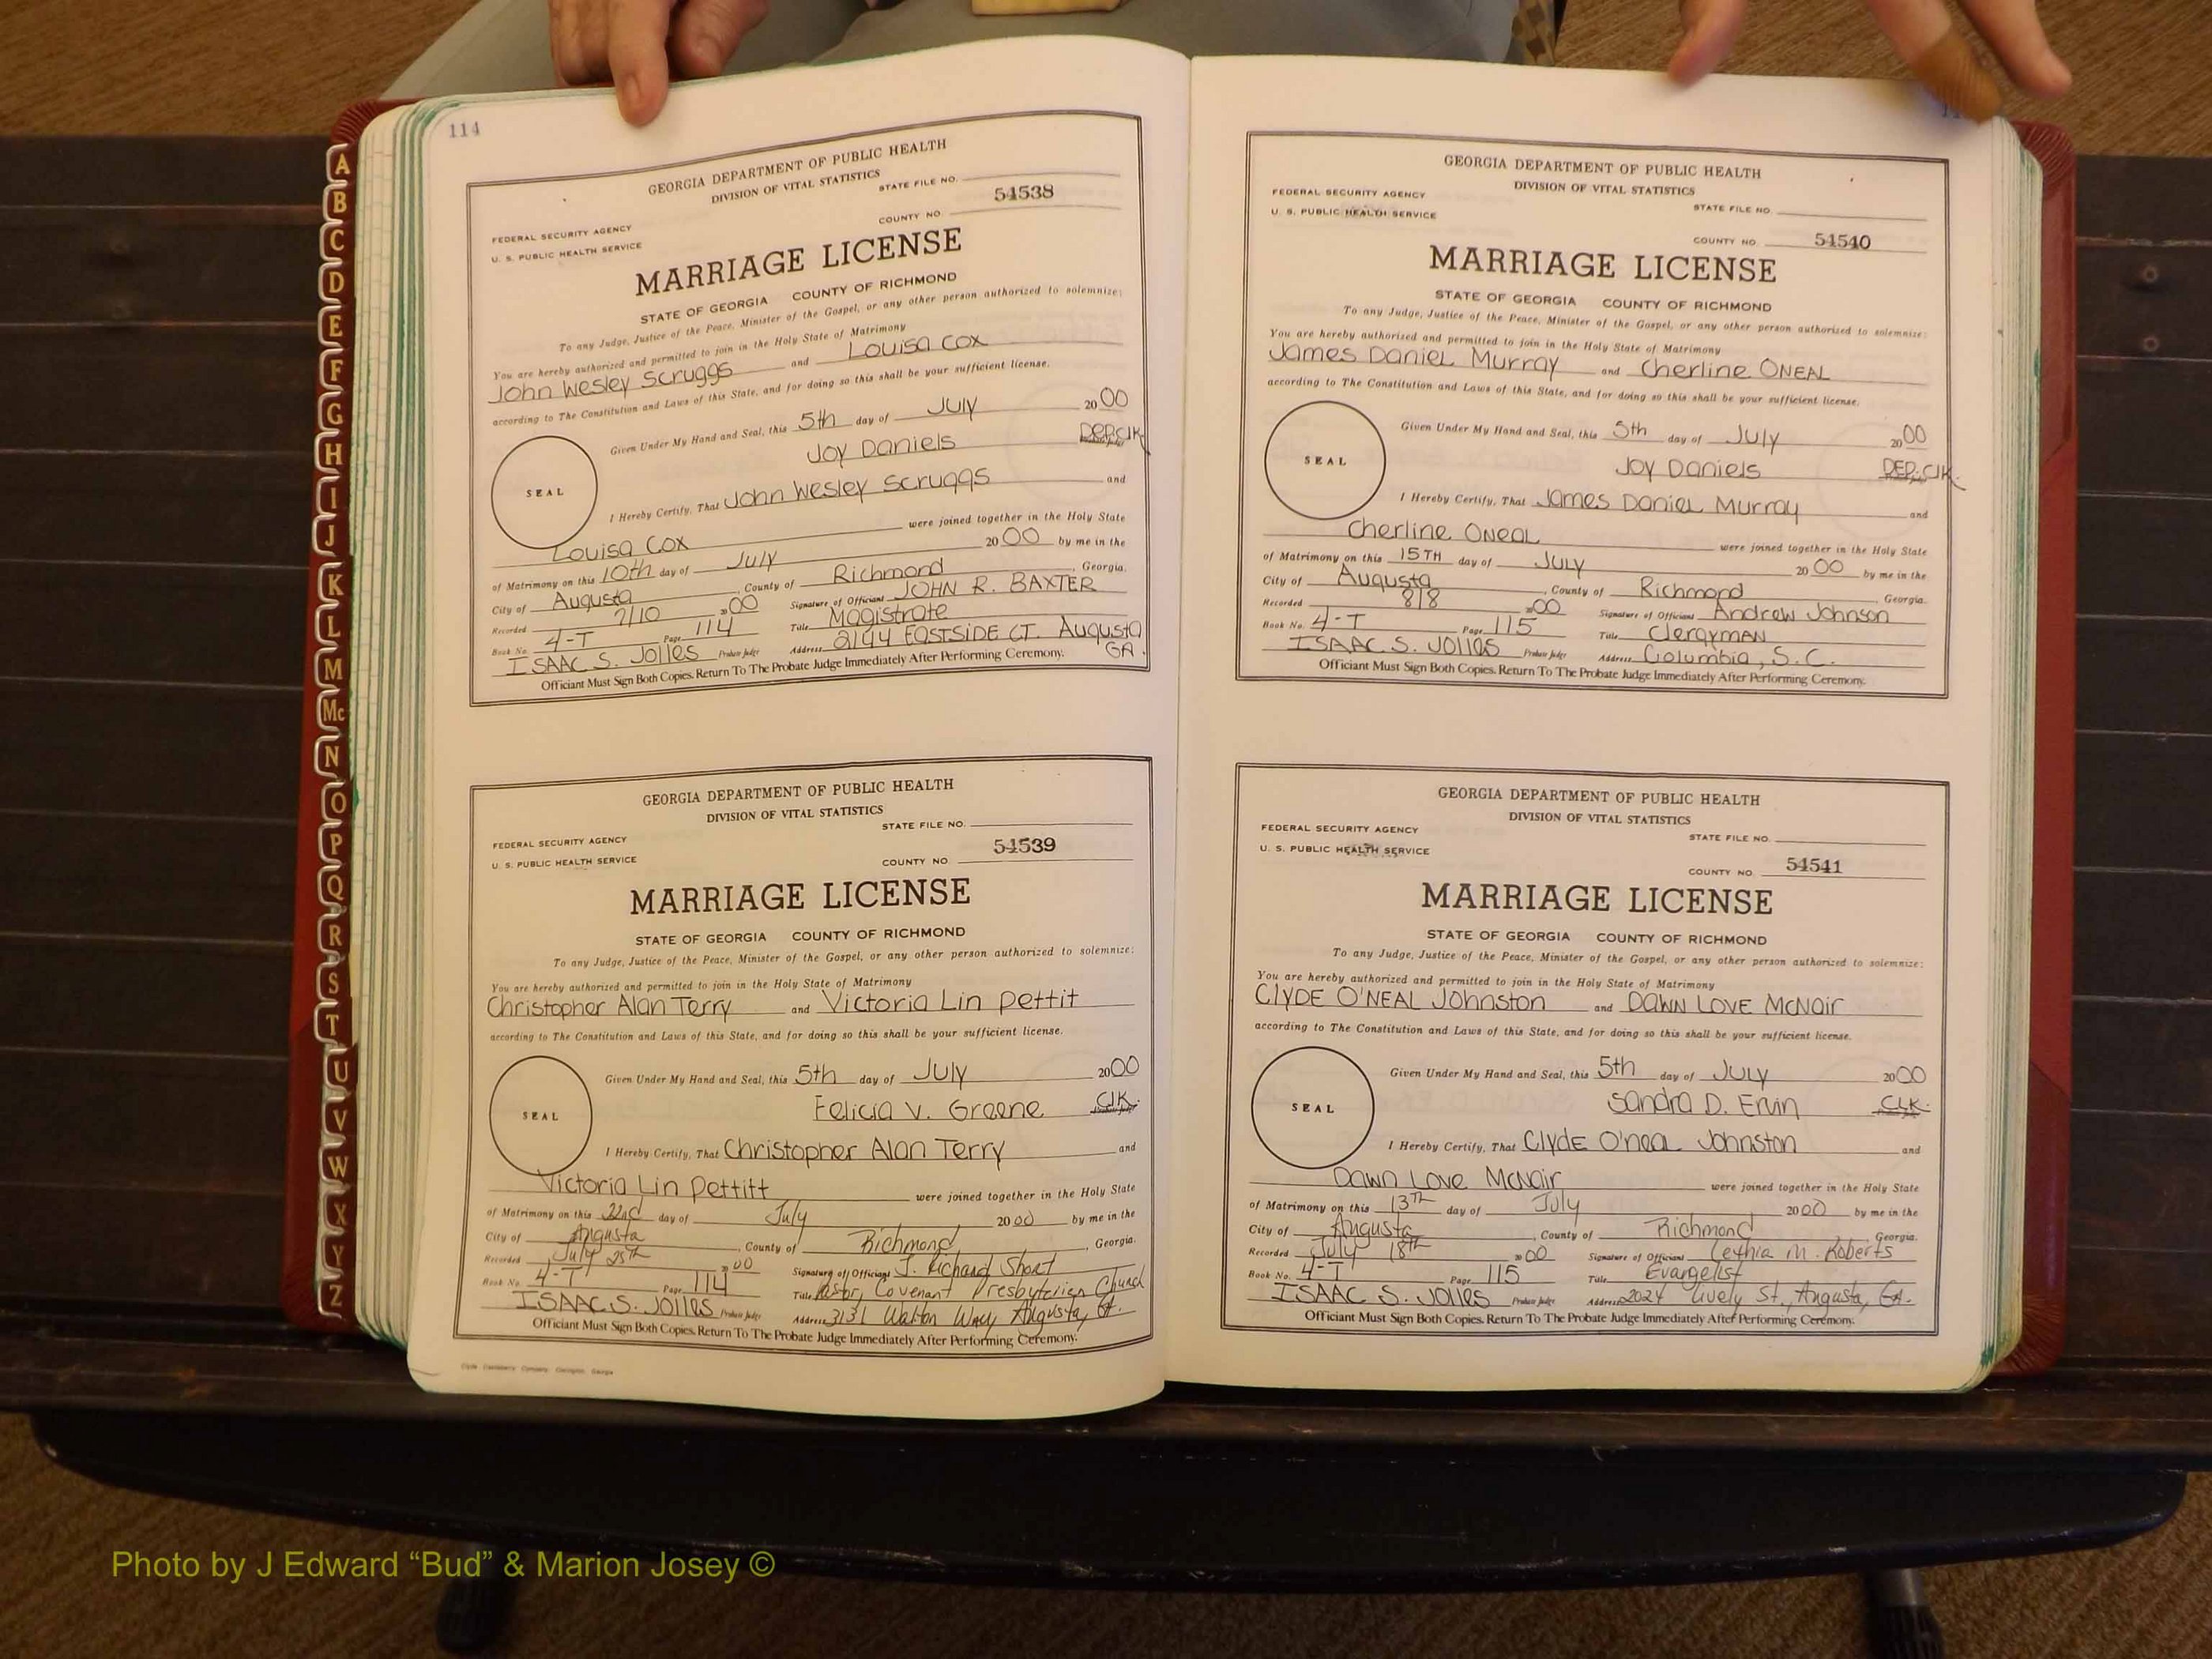 114
GEORGIA DEPARTMENT OF PUBLIC HEALTH
DIVISION OF VITAL STATISTICS
STATE FILE NO.
FEDERAL SECURITY AGENCY
U. S. PUBLIC HEALTH SERVICE
COUNTY NO. 54538
MARRIAGE LICENSE
STATE OF GEORGIA COUNTY OF RICHMOND
To any Judge, Justice of the Peace, Minister of the Gospel, or any other person authorized to solemnize:
You are hereby authorized and permitted to join in the Holy State of Matrimony
John Wesley Scruggs and Louisa Cox
according to The Constitution and Laws of this State, and for doing so this shall be your sufficient license.
Given Under My Hand and Seal, this 5th day of July 2000
SEAL
Joy Daniels DEP. Clk.
I Hereby Certify, That John Wesley Scruggs and
Louisa Cox were joined together in the Holy State
of Matrimony on this 10th day of July 2000 by me in the
City of Augusta, County of Richmond, Georgia.
Recorded 7/10 2000 Signature of Official JOHN R. BAXTER
Book No. 4-T Page 114 Title Magistrate
ISAAC S. Jolles Probate Judge Address 2144 EASTSIDE CT. Augusta GA.
Officiant Must Sign Both Copies. Return To The Probate Judge Immediately After Performing Ceremony.
GEORGIA DEPARTMENT OF PUBLIC HEALTH
DIVISION OF VITAL STATISTICS
STATE FILE NO.
FEDERAL SECURITY AGENCY
U. S. PUBLIC HEALTH SERVICE
COUNTY NO. 54539
MARRIAGE LICENSE
STATE OF GEORGIA COUNTY OF RICHMOND
To any Judge, Justice of the Peace, Minister of the Gospel, or any other person authorized to solemnize:
You are hereby authorized and permitted to join in the Holy State of Matrimony
Christopher Alan Terry and Victoria Lin Pettit
according to The Constitution and Laws of this State, and for doing so this shall be your sufficient license.
Given Under My Hand and Seal, this 5th day of July 2000
SEAL
Felicia V. Greene Clk.
I Hereby Certify, That Christopher Alan Terry and
Victoria Lin Pettitt were joined together in the Holy State
of Matrimony on this 22nd day of July 2000 by me in the
City of Augusta, County of Richmond, Georgia.
Recorded July 25th 2000 Signature of Official J. Richard Short
Book No. 4-T Page 114 Title Pastor, Covenant Presbyterian Church
ISAAC S. Jolles Probate Judge Address 3131 Walton Way Augusta, GA.
Officiant Must Sign Both Copies. Return To The Probate Judge Immediately After Performing Ceremony.
GEORGIA DEPARTMENT OF PUBLIC HEALTH
DIVISION OF VITAL STATISTICS
FEDERAL SECURITY AGENCY
STATE FILE NO.
U. S. PUBLIC HEALTH SERVICE
COUNTY NO. 54540
MARRIAGE LICENSE
STATE OF GEORGIA COUNTY OF RICHMOND
To any Judge, Justice of the Peace, Minister of the Gospel, or any other person authorized to solemnize:
You are hereby authorized and permitted to join in the Holy State of Matrimony
James Daniel Murray and Cherline ONEAL
according to The Constitution and Laws of this State, and for doing so this shall be your sufficient license.
Given Under My Hand and Seal, this 5th day of July 2000
SEAL
Joy Daniels DEP. Clk.
I Hereby Certify, That James Daniel Murray and
Cherline ONEAL were joined together in the Holy State
of Matrimony on this 15TH day of JULY 2000 by me in the
City of Augusta, County of Richmond, Georgia.
Recorded 8/8 2000 Signature of Official Andrew Johnson
Book No. 4-T Page 115 Title Clergyman
ISAAC S. Jolles Probate Judge Address Columbia, S.C.
Officiant Must Sign Both Copies. Return To The Probate Judge Immediately After Performing Ceremony.
GEORGIA DEPARTMENT OF PUBLIC HEALTH
DIVISION OF VITAL STATISTICS
FEDERAL SECURITY AGENCY
STATE FILE NO.
U. S. PUBLIC HEALTH SERVICE
COUNTY NO. 54541
MARRIAGE LICENSE
STATE OF GEORGIA COUNTY OF RICHMOND
To any Judge, Justice of the Peace, Minister of the Gospel, or any other person authorized to solemnize:
You are hereby authorized and permitted to join in the Holy State of Matrimony
CLYDE O'NEAL Johnston and DAWN LOVE McNair
according to The Constitution and Laws of this State, and for doing so this shall be your sufficient license.
Given Under My Hand and Seal, this 5th day of July 2000
SEAL
Sandra D. Ervin CLK.
I Hereby Certify, That Clyde O'neal Johnston and
Dawn Love McNair were joined together in the Holy State
of Matrimony on this 13TH day of July 2000 by me in the
City of Augusta, County of Richmond, Georgia.
Recorded July 18th 2000 Signature of Official Lethia M. Roberts
Book No. 4-T Page 115 Title Evangelist
ISAAC S. Jolles Probate Judge Address 2024 Lively St., Augusta, GA.
Officiant Must Sign Both Copies. Return To The Probate Judge Immediately After Performing Ceremony.
A
B
C
D
E
F
G
H
I
J
K
L
M
Mc
N
O
P
Q
R
S
T
U
V
W
X
Y
Z
Photo by J Edward “Bud” & Marion Josey ©